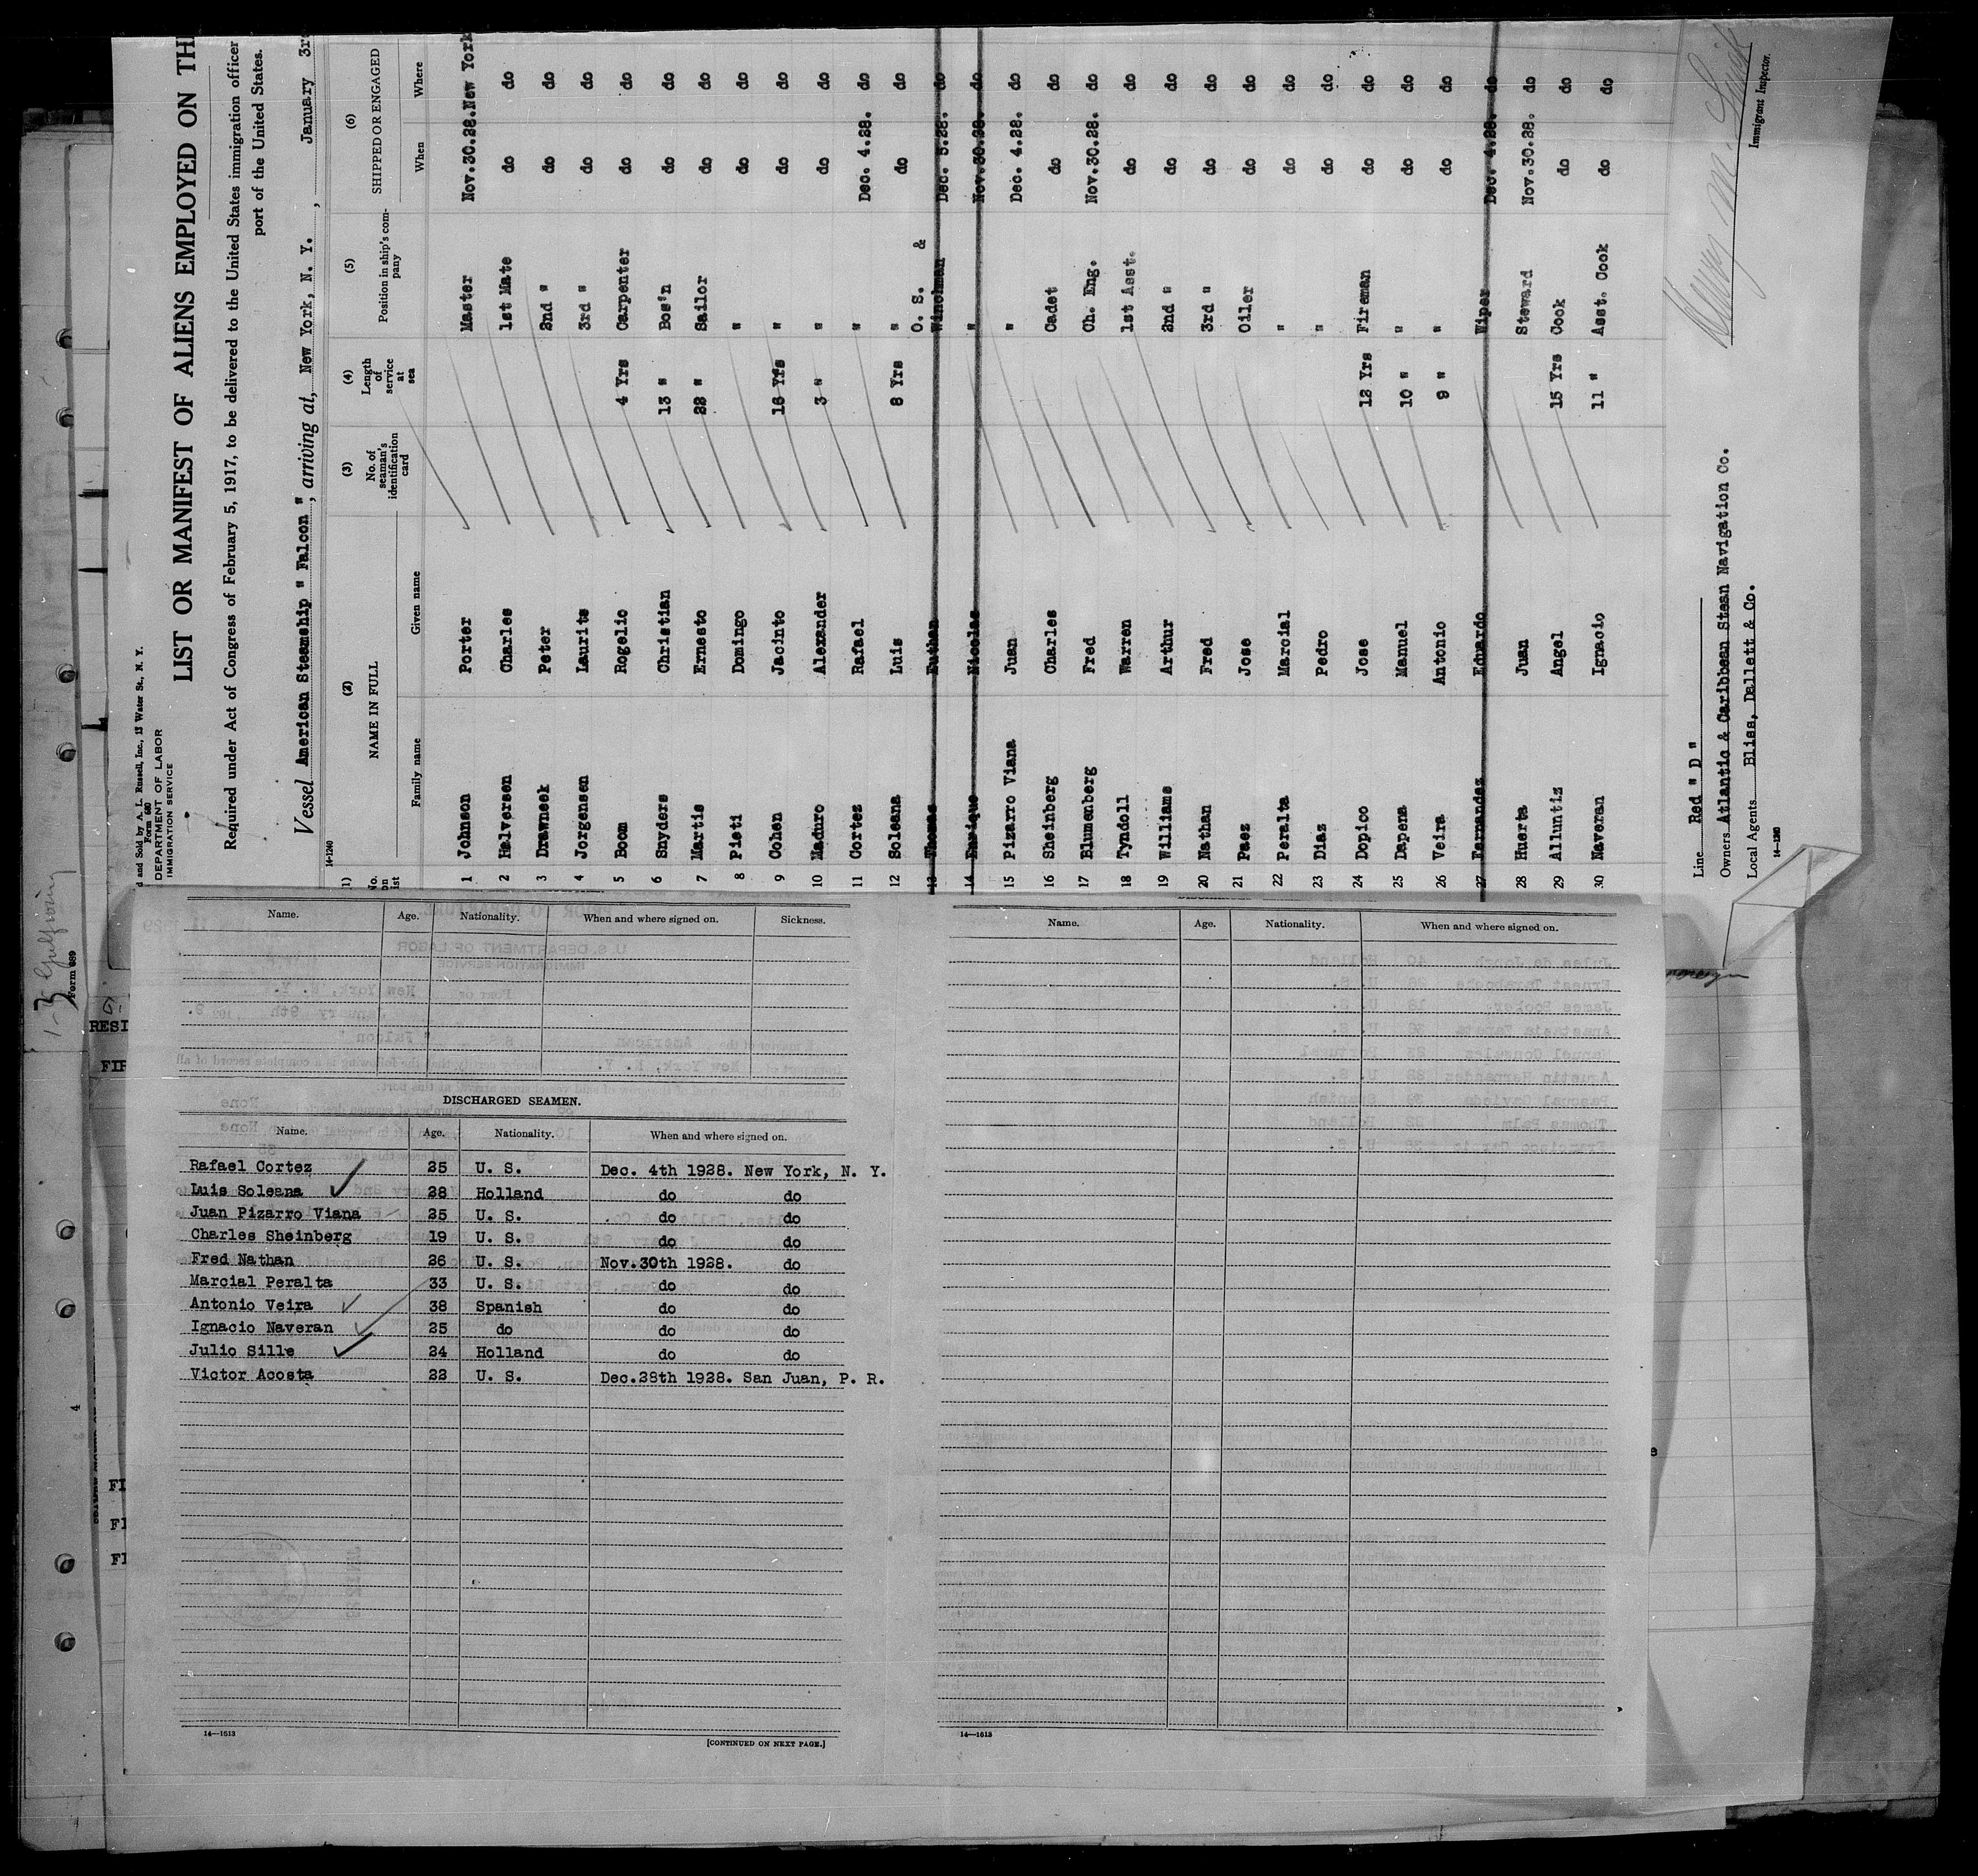 d and Sold by A. L. Russell, Inc., 13 Water St., N. Y.
Form 680
DEPARTMENT OF LABOR
IMMIGRATION SERVICE
LIST OR MANIFEST OF ALIENS EMPLOYED ON TH
Required under Act of Congress of February 5, 1917, to be delivered to the United States immigration officer
port of the United States.
Vessel American Steamship " Falcon ", arriving at, New York, N. Y. , January 3r
14-1240
(1) (2) (3) (4) (5) (6)
No. on list NAME IN FULL No. of seaman's identification card Length of service at sea Position in ship's company SHIPPED OR ENGAGED
Family name Given name When Where
1 Johnson Porter Master Nov.30.28. New York
2 Halversen Charles 1st Mate do do
3 Drawneek Peter 2nd " do do
4 Jorgensen Laurits 3rd " do do
5 Boom Rogelio 4 Yrs Carpenter do do
6 Snyders Christian 13 " Bos'n do do
7 Martis Ernesto 22 " Sailor do do
8 Pieti Domingo " do do
9 Cohen Jacinto 16 Yrs " do do
10 Maduro Alexander 3 " " do do
11 Cortez Rafael " Dec. 4.28. do
12 Soleana Luis 8 Yrs " do do
O. S. &
13 Thomas Winchman Dec. 5.28. do
14 Enrique Nicolas " Nov.30.28. do
15 Pizarro Viana Juan " Dec. 4.28. do
16 Sheinberg Charles Cadet do do
17 Blumenberg Fred Ch. Eng. Nov.30.28. do
18 Tyndoll Warren 1st Asst. do do
19 Williams Arthur 2nd " do do
20 Nathan Fred 3rd " do do
21 Paez Jose Oiler do do
22 Peralta Marcial " do do
23 Diaz Pedro " do do
24 Dopico Jose 12 Yrs Fireman do do
25 Dapena Manuel 10 " " do do
26 Veira Antonio 9 " " do do
27 Fernandez Eduardo Wiper Dec. 4.28. do
28 Huerta Juan Steward Nov.30.28. do
29 Alluntiz Angel 15 Yrs Cook do do
30 Naveran Ignacio 11 " Asst. Cook do do
Line Red " D "
Owners Atlantic & Caribbean Steam Navigation Co.
Local Agents Bliss, Dallett & Co.
14-1240
Immigrant Inspector.
Form 689
RESI
FIR
4
FI
FI
FI
Name. Age. Nationality. When and where signed on. Sickness.
DISCHARGED SEAMEN.
Name. Age. Nationality. When and where signed on.
Rafael Cortez 25 U. S. Dec. 4th 1928. New York, N. Y.
Luis Soleana 28 Holland do do
Juan Pizarro Viana 25 U. S. do do
Charles Sheinberg 19 U. S. do do
Fred Nathan 26 U. S. Nov.30th 1928. do
Marcial Peralta 33 U. S. do do
Antonio Veira 38 Spanish do do
Ignacio Naveran 25 do do do
Julio Sille 24 Holland do do
Victor Acosta 22 U. S. Dec.28th 1928. San Juan, P. R.
14—1513
[CONTINUED ON NEXT PAGE.]
Name. Age. Nationality. When and where signed on.
14—1513